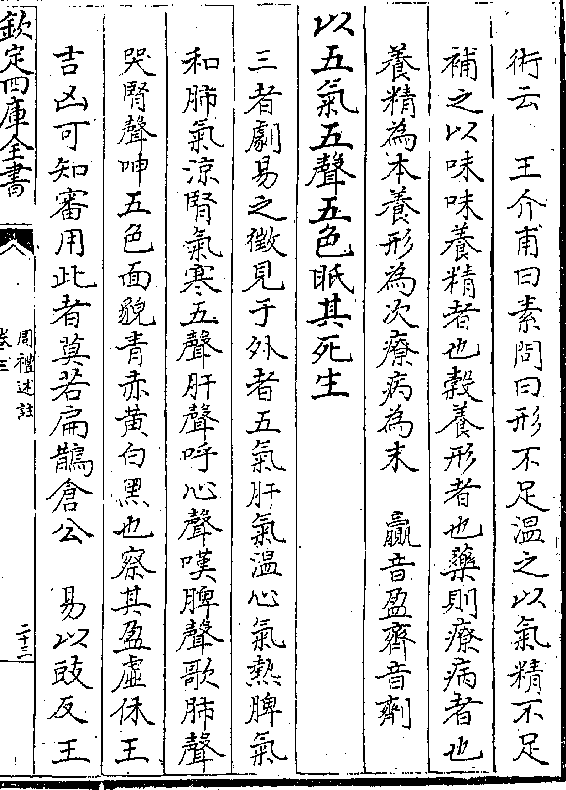 術云　王介甫曰素問曰形不足溫之以氣精不足
補之以味味養精者也穀養形者也藥則療病者也
養精為本養形為次療病為末　贏音盈齊音劑
以五氣五聲五色眂其死生
三者劇易之徵見于外者五氣肝氣溫心氣熱脾氣
和肺氣涼腎氣寒五聲肝聲呼心聲嘆脾聲歌肺聲
哭腎聲呻五色面貌青赤黃白黑也察其盈虛休王
吉凶可知審用此者莫若扁鵲倉公　易以豉反王
欽定四庫全書
周禮述註
卷三
二十二